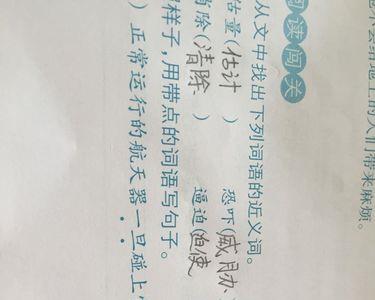 也不会给地上的人们带来麻烦。
阅读闯关
从文中找出下列词语的近义词。
估量(估计 ) 恐吓(威胁
消除(清除 ) 逼迫(迫使
样子，用带点的词语写句子。
) 正常运行的航天器一旦碰上